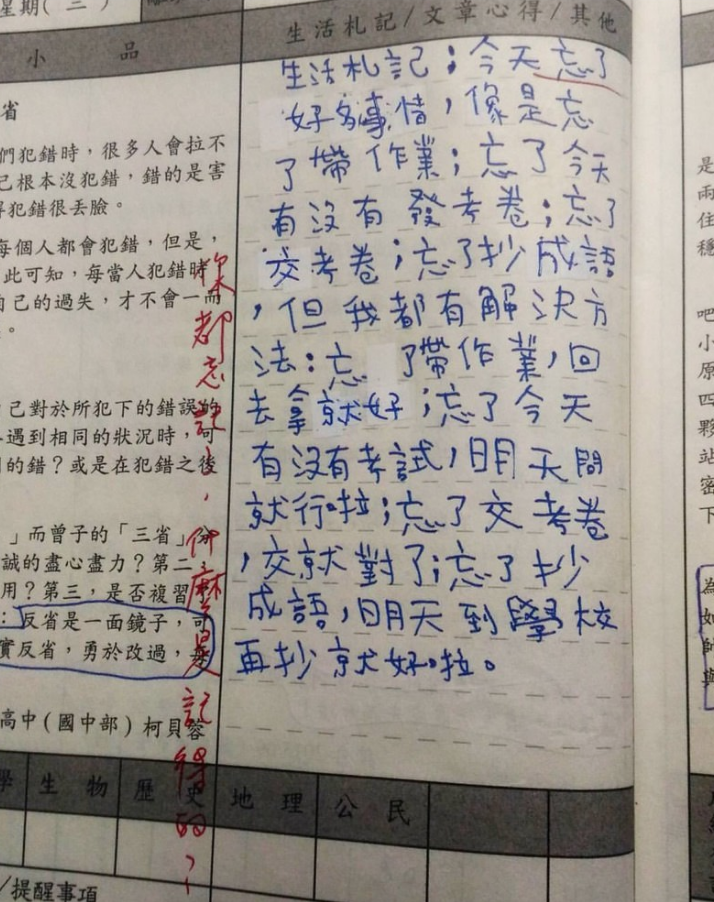 星期(三)
生活札記/文章心得/其他
小 品
省
們犯錯時，很多人會拉不
己根本沒犯錯，錯的是害
得犯錯很丟臉。
每個人都會犯錯，但是，
此可知，每當人犯錯時
自己的過失，才不會一而
。
己對於所犯下的錯誤的
遇到相同的狀況時，可
的錯？或是在犯錯之後
」而曾子的「三省」分
誠的盡心盡力？第二，
用？第三，是否複習
：反省是一面鏡子，可
實反省，勇於改過，
高中(國中部) 柯貝蓉
生活札記：今天忘了
好多事情，像是忘
了帶作業；忘了今天
有沒有發考卷；忘了
交考卷；忘了抄成語
，但我都有解決方
法：忘了帶作業，回
去拿就好；忘了今天
有沒有考試，明天問
就行啦；忘了交考卷
，交就對了；忘了抄
成語，明天到學校
再抄就好啦。
你都忘記了，什麼是記得的？
學 生物 歷史 地理 公民
/提醒事項
是
兩
住
穩
吧
小
原
四
夥
站
密
下
為
如
師
與